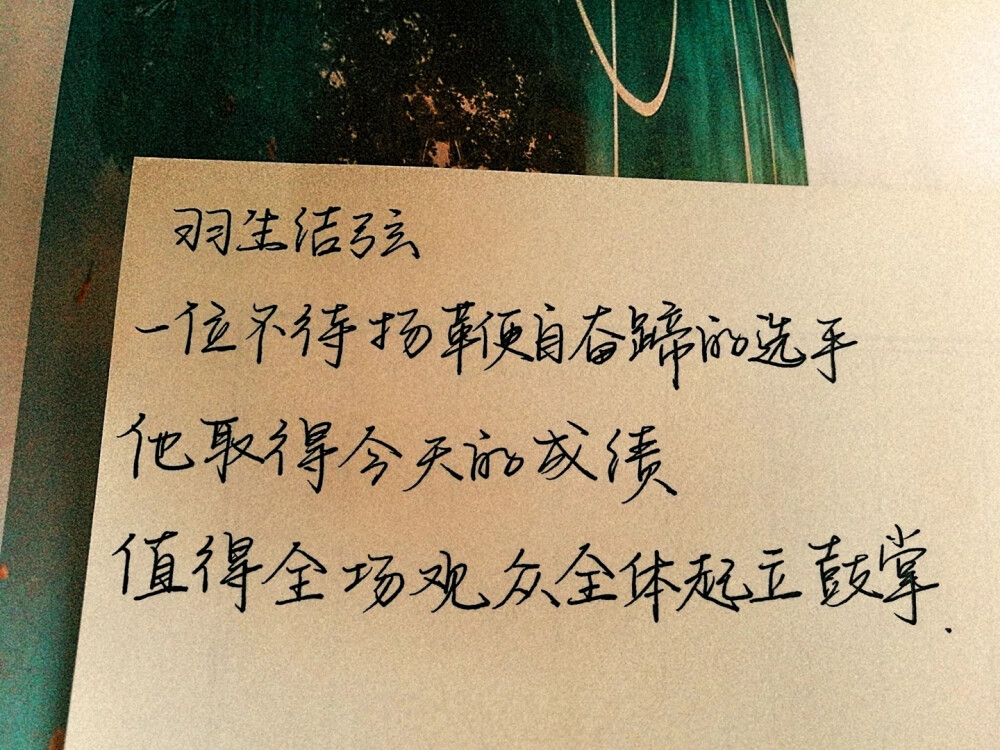 羽生结弦
一位不待扬革便自奋蹄的选手
他取得今天的成绩
值得全场观众全体起立鼓掌.